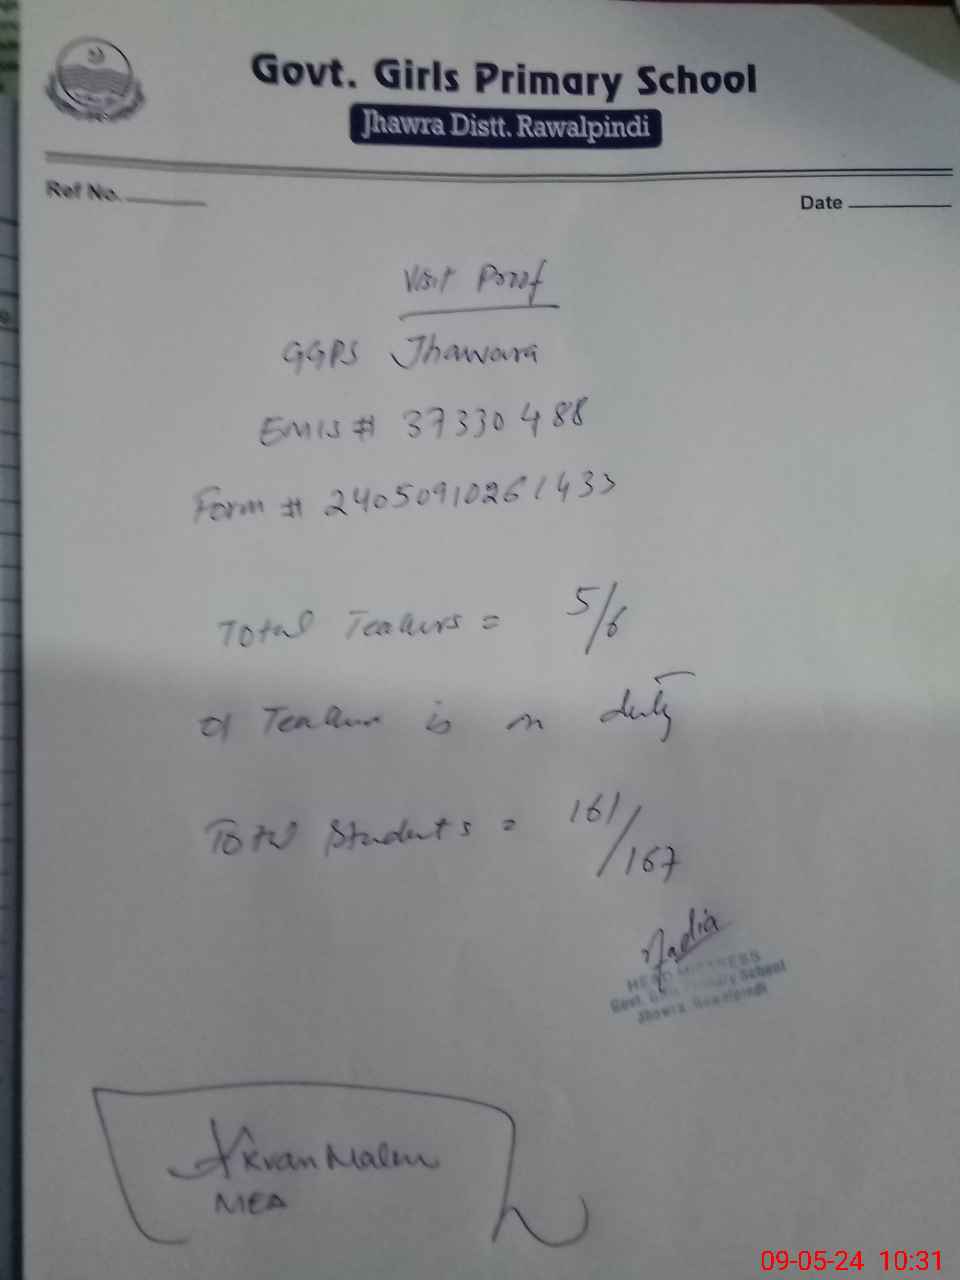 Govt. Girls Primary School
Jhawra Distt. Rawalpindi
Ref No.
Date
Visit Proof
GGPS Jhawara
EMIS # 37330488
Form # 24050910261433
Total Teachers = 5/6
01 Teacher is on duty
Total Students = 161/167
Nadia
HEAD MISTRESS
Govt. Girls Primary School
Jhawra, Rawalpindi
MEA
09-05-24 10:31